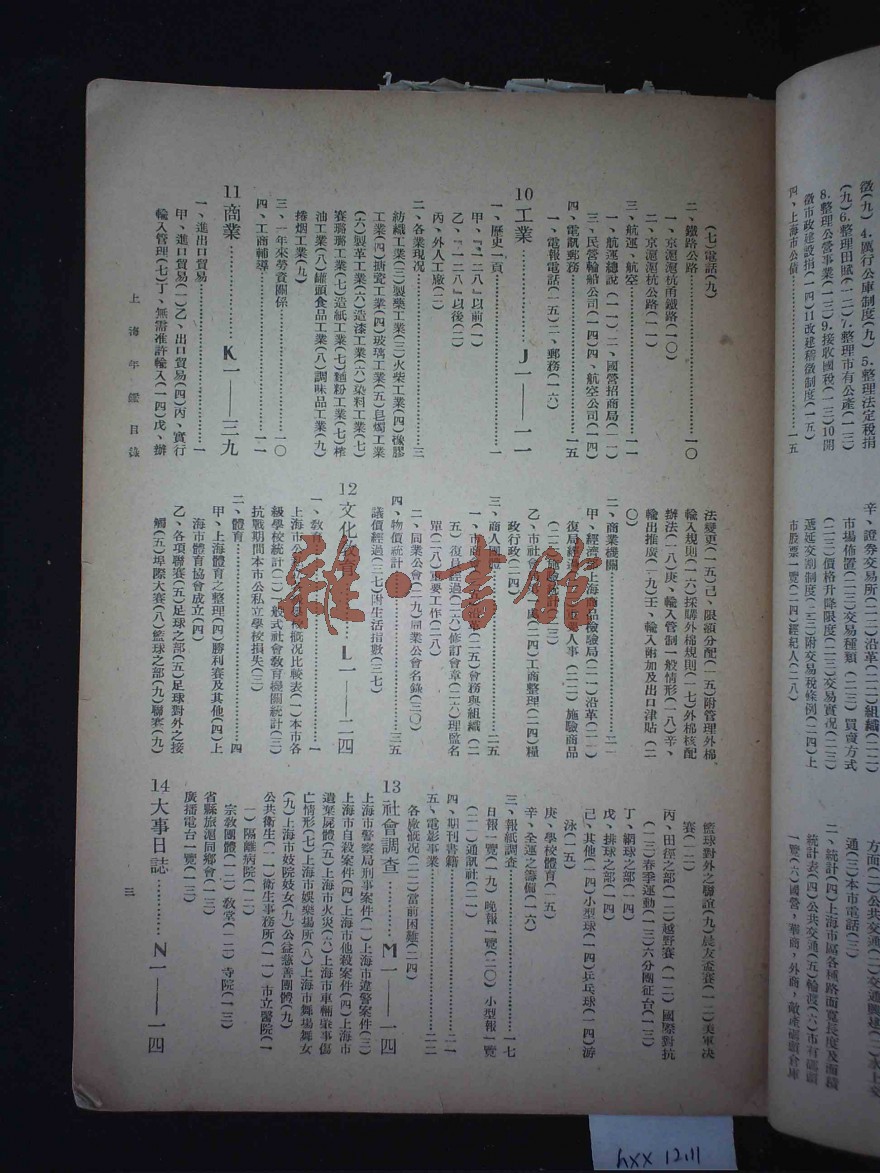 徵(九)4.厲行公庫制度(九)5.整理法定稅捐
(九)6.整理田賦(一二)7.整理市有公產(一三)
8.整理公營事業(一三)9.接收國稅(一三)10開
徵市政建設捐(一四)11改建稽徵制度(一五)
四、上海市公債⋯⋯⋯⋯一五
辛、證券交易所(二二)沿革(二二)組織(二二)
市場佈置(二三)交易種類(二三)買賣方式
(二三)價格升降限度(二三)交易實況(二三)
遞延交割制度(二三)附交易稅條例(二四)上
市股票一覽(二四)經紀人(二八)
方面(二)公共交通(二)交通興建(二)水上交
通(三)本市電話(三)
二、統計(四)上海市區各種路面寬長度及面積
統計表(四)公共交通(五)輪渡(六)市有碼頭
一覽(六)國營，華商，外商，敵產碼頭倉庫
(七)電話(九)
二、鐵路公路⋯⋯⋯⋯一〇
一、京滬滬杭甬鐵路(一〇)
二、京滬滬杭公路(一一)
三、航運、航空⋯⋯⋯⋯一一
一、航運總說(一一)二、國營招商局(一一)
三、民營輪船公司(一四)四、航空公司(一四)
四、電訊郵務⋯⋯⋯⋯一五
一、電報電話(一五)二、郵務(一六)
10工業⋯⋯⋯⋯J一——一一
一、歷史一頁⋯⋯⋯⋯一
甲、『一二八』以前(一)
乙、『一二八』以後(二)
丙、外人工廠(二)
二、各業現況⋯⋯⋯⋯三
紡織工業(三)製藥工業(三)火柴工業(四)橡膠
工業(四)搪瓷工業(四)玻璃工業(五)皂燭工業
(六)製革工業(六)造漆工業(六)染料工業(七)
賽璐璐工業(七)造紙工業(七)麵粉工業(七)榨
油工業(八)罐頭食品工業(八)調味品工業(九)
捲烟工業(九)
三、一年來勞資關係⋯⋯⋯⋯一〇
四、工商輔導⋯⋯⋯⋯一一
11商業⋯⋯⋯⋯K一——三九
一、進出口貿易⋯⋯⋯⋯一
甲、進口貿易(一)乙、出口貿易(四)丙、實行
輸入管理(七)丁、無需准許輸入(一四)戊、辦
法變更(一五)己、限額分配(一五)附管理外棉
輸入規則(一六)採購外棉規則(一七)外棉核配
辦法(一八)庚、輸入管制一般情形(一八)辛、
輸出推廣(一九)壬、輸入附加及出口津貼(二
〇)
二、商業機關⋯⋯⋯⋯二一
甲、經濟部上海商品檢驗局(二一)沿革(二一)
復局經過(二一)組織人事(二二)施驗商品
(二二)施驗統計(二三)
乙、市社會局(二四)工商整理(二四)糧
政行政(二四)
三、商人團體⋯⋯⋯⋯二五
一、市商會(二五)會務與組織(二
五)復員經過(二六)修訂會章(二六)理監名
單(二八)重要工作(二八)
二、同業公會(二九)同業公會名錄(三〇)
四、物價統計⋯⋯⋯⋯三五
議價經過(三七)附生活指數(三七)
12文化教育⋯⋯⋯⋯L一——二四
一、教育⋯⋯⋯⋯一
上海市公私立各級學校概况比較表(一)本市各
級學校統計(二)一般式社會教育機關統計(三)
抗戰期間本市公私立學校損失(三)
二、體育⋯⋯⋯⋯四
甲、上海體育之整理(四)勝利賽及其他(四)上
海市體育協會成立(四)
乙、各項聯賽(五)足球之部(五)足球對外之接
觸(五)埠際大賽(八)籃球之部(九)聯賽(九)
籃球對外之聯誼(九)晨友盃賽(一二)美軍决
賽(一二)
丙、田徑之部(一二)越野賽(一二)國際對抗
(一三)春季運動(一三)六分團征台(一三)
丁、網球之部(一四)
戊、排球之部(一四)
己、其他(一四)小型球(一四)乒乓球(一四)游
泳(一五)
庚、學校體育(一五)
辛、全運之籌備(一六)
三、報紙調查⋯⋯⋯⋯一七
日報一覽(一九)晚報一覽(二〇)小型報一覽
(二一)通訊社(二一)
四、期刊書籍⋯⋯⋯⋯二一
五、電影事業⋯⋯⋯⋯二二
各廠概況(二二)當前困難(二四)
13社會調查⋯⋯⋯⋯M一——一四
上海市警察局刑事案件(一)上海市違警案件(三)
上海市自殺案件(四)上海市他殺案件(四)上海市
遺棄屍體(五)上海市火災(六)上海市車輛肇事傷
亡情形(七)上海市娛樂場所(八)上海市舞場舞女
(九)上海市妓院妓女(九)公益慈善團體(九)
公共衛生(一一)衛生事務所(一一)市立醫院(一
一)隔離病院(一二)
宗教團體(一二)教堂(一二)寺院(一三)
省縣旅滬同鄉會(一三)
廣播電台一覽(一三)
14大事日誌⋯⋯⋯⋯N一——一四
上海年鑑目錄
三
雜·書館
hxx 1211